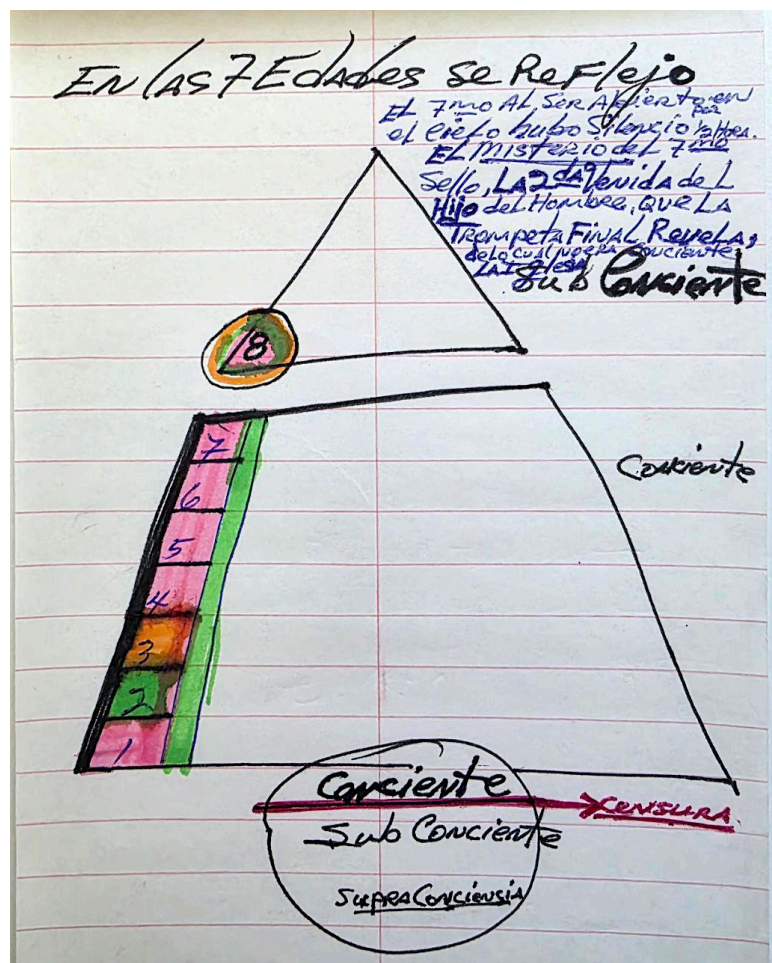 En las 7 Edades se Reflejo
El 7mo Al, Ser Abierto en
el cielo hubo Silencio por ½ Hora.
El Misterio del 7mo
Sello, LA 2da Venida del
Hijo del Hombre, Que LA
Trompeta Final Revela,
de lo cual no era conciente
LA Iglesia
Sub Conciente
8
7
Conciente
6
5
4
3
2
1
Conciente
CENSURA
Sub Conciente
SupraConciensia